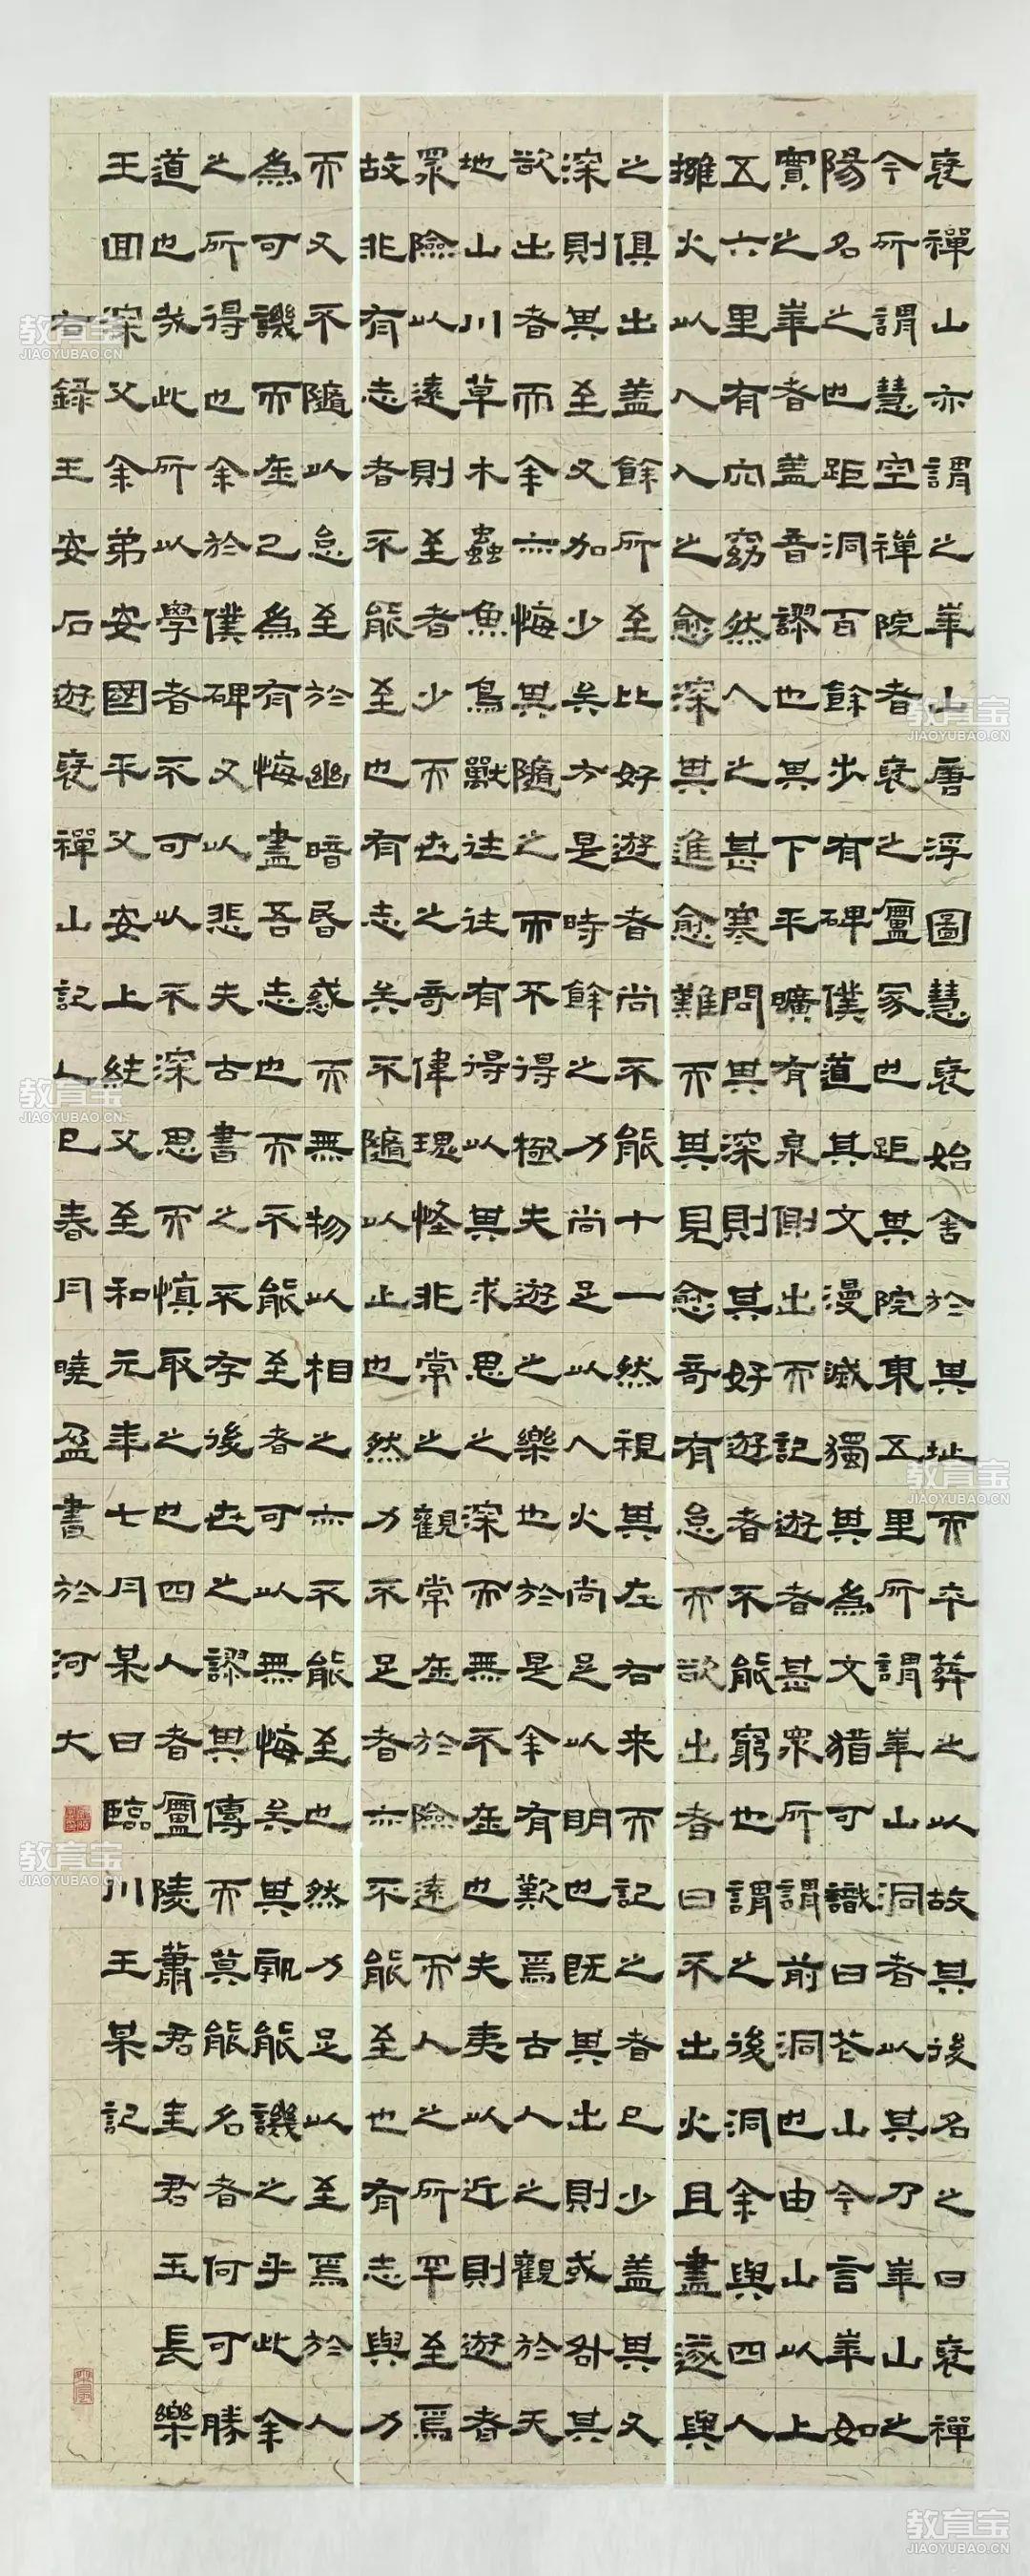 褒禪山亦謂之華山唐浮圖慧褒始舍於其址而卒葬之以故其後名之曰褒禪
今所謂慧空禪院者褒之廬冢也距其院東五里所謂華山洞者以其乃華山之
陽名之也距洞百餘步有碑僕道其文漫滅獨其為文猶可識曰花山今言華如
實之華者盖音謬也其下平曠有泉側出而記遊者甚眾所謂前洞也由山以上
五六里有穴窈然入之甚寒問其深則其好遊者不能窮也謂之後洞余與四人
擁火以入入之愈深其進愈難而其見愈奇有怠而欲出者曰不出火且盡遂與
之俱出盖餘所至比好遊者尚不能十一然視其左右来而記之者已少盖其又
深則其至又加少矣方是時餘之力尚足以入火尚足以明也既其出則或咎其
欲出者而余亦悔其隨之而不得極夫遊之樂也於是余有歎焉古人之觀於天
地山川草木蟲魚鳥獸往往有得以其求思之深而無不在也夫夷以近則遊者
眾險以遠則至者少而世之奇偉瑰怪非常之觀常在於險遠而人之所罕至焉
故非有志者不能至也有志矣不隨以止也然力不足者亦不能至也有志與力
而又不隨以怠至於幽暗昏惑而無物以相之亦不能至也然力足以至焉於人
為可譏而在己為有悔盡吾志也而不能至者可以無悔矣其孰能譏之乎此余
之所得也余於僕碑又以悲夫古書之不存後世之謬其傳而莫能名者何可勝
道也哉此所以學者不可以不深思而慎取之也四人者廬陵蕭君圭君玉長樂
王回深父余弟安國平父安上純父至和元年七月某日臨川王某記
右錄王安石遊褒禪山記乙巳春月曉盈書於河大
教育宝
JIAOYUBAO.CN
教育宝
JIAOYUBAO.CN
教育宝
JIAOYUBAO.CN
教育宝
JIAOYUBAO.CN
教育宝
JIAOYUBAO.CN
教育宝
JIAOYUBAO.CN